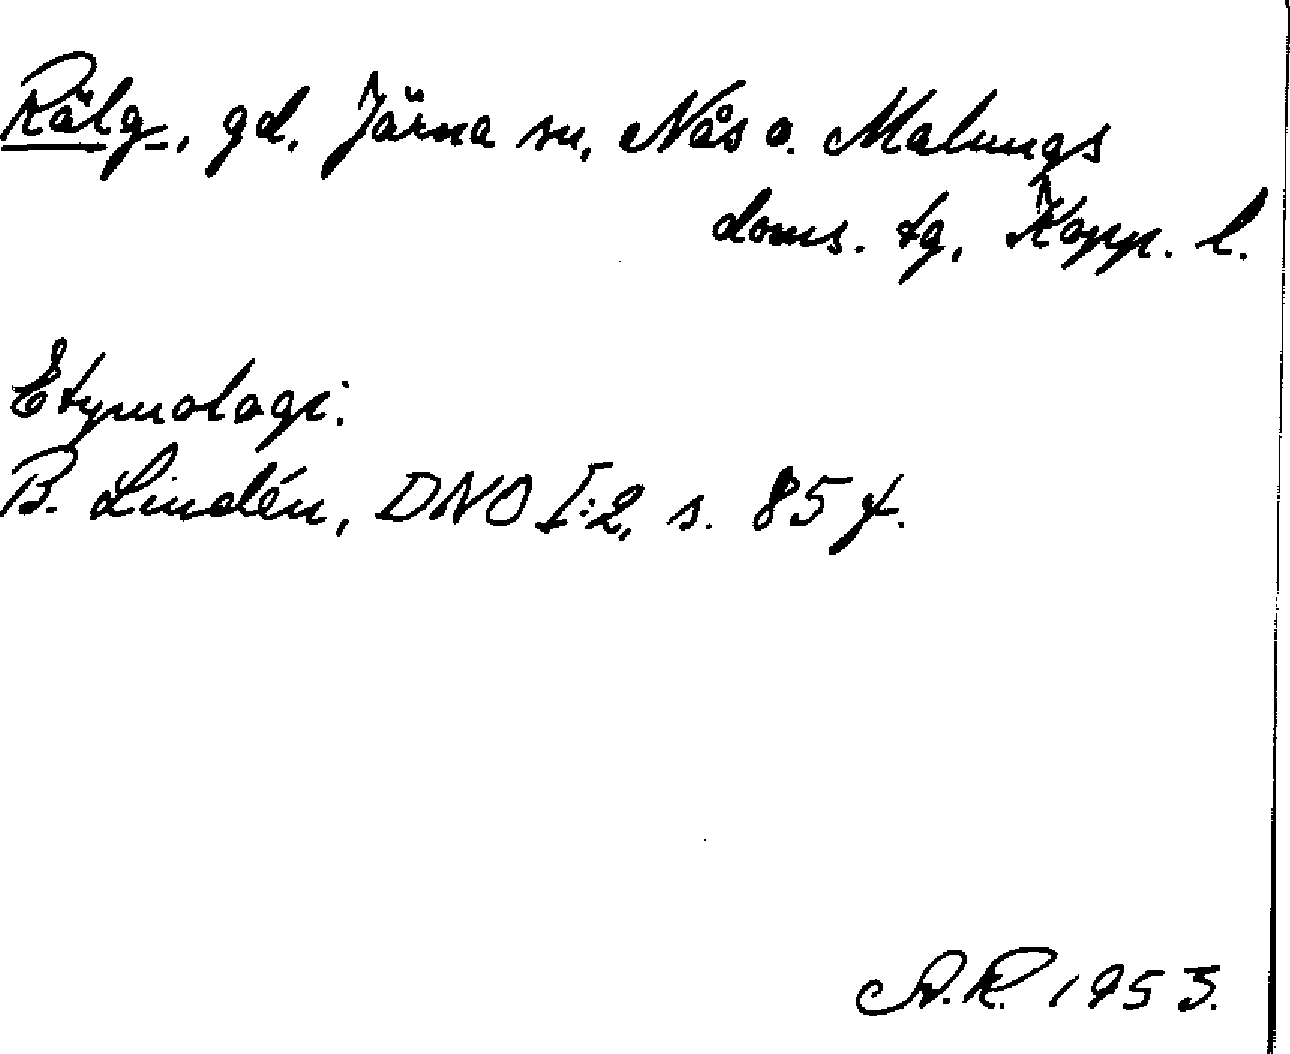 Rälg, gd. Järna sn, Nås o. Malungs
doms. tg, Kopp. l.
Etymologi:
B. Lindén, DNO I:2, s. 85 f.
A.R. 1953.